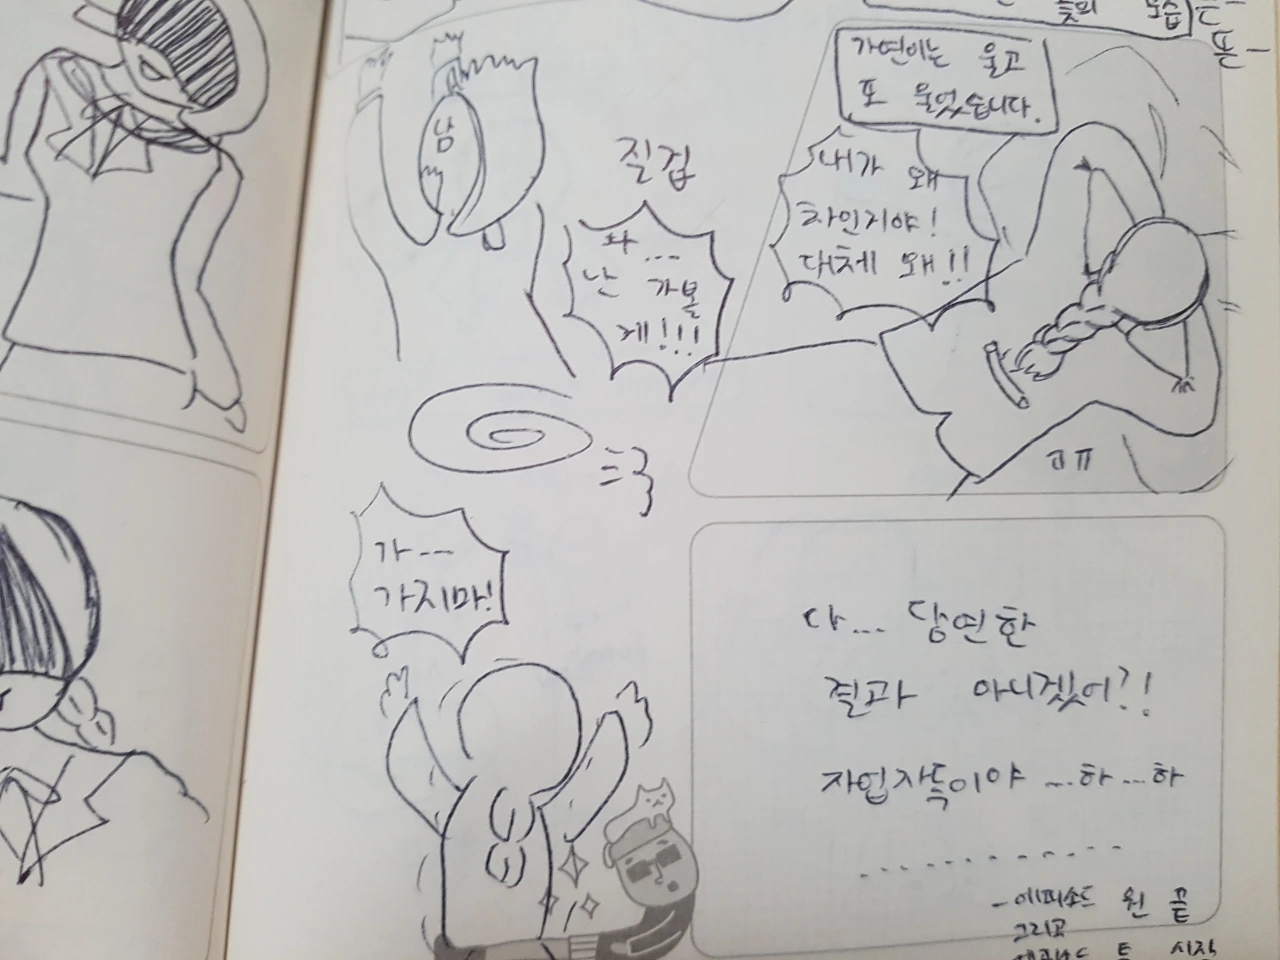 남
질겁
와...
난 가볼
게!!!
가연이는 울고
또 울었습니다.
내가 왜
차인거야!
대체 왜!!
가...
가지마!
다... 당연한
결과 아니겠어?!
자업자득이야 ...하...하
...........
- 에피소드 원 끝
그리고